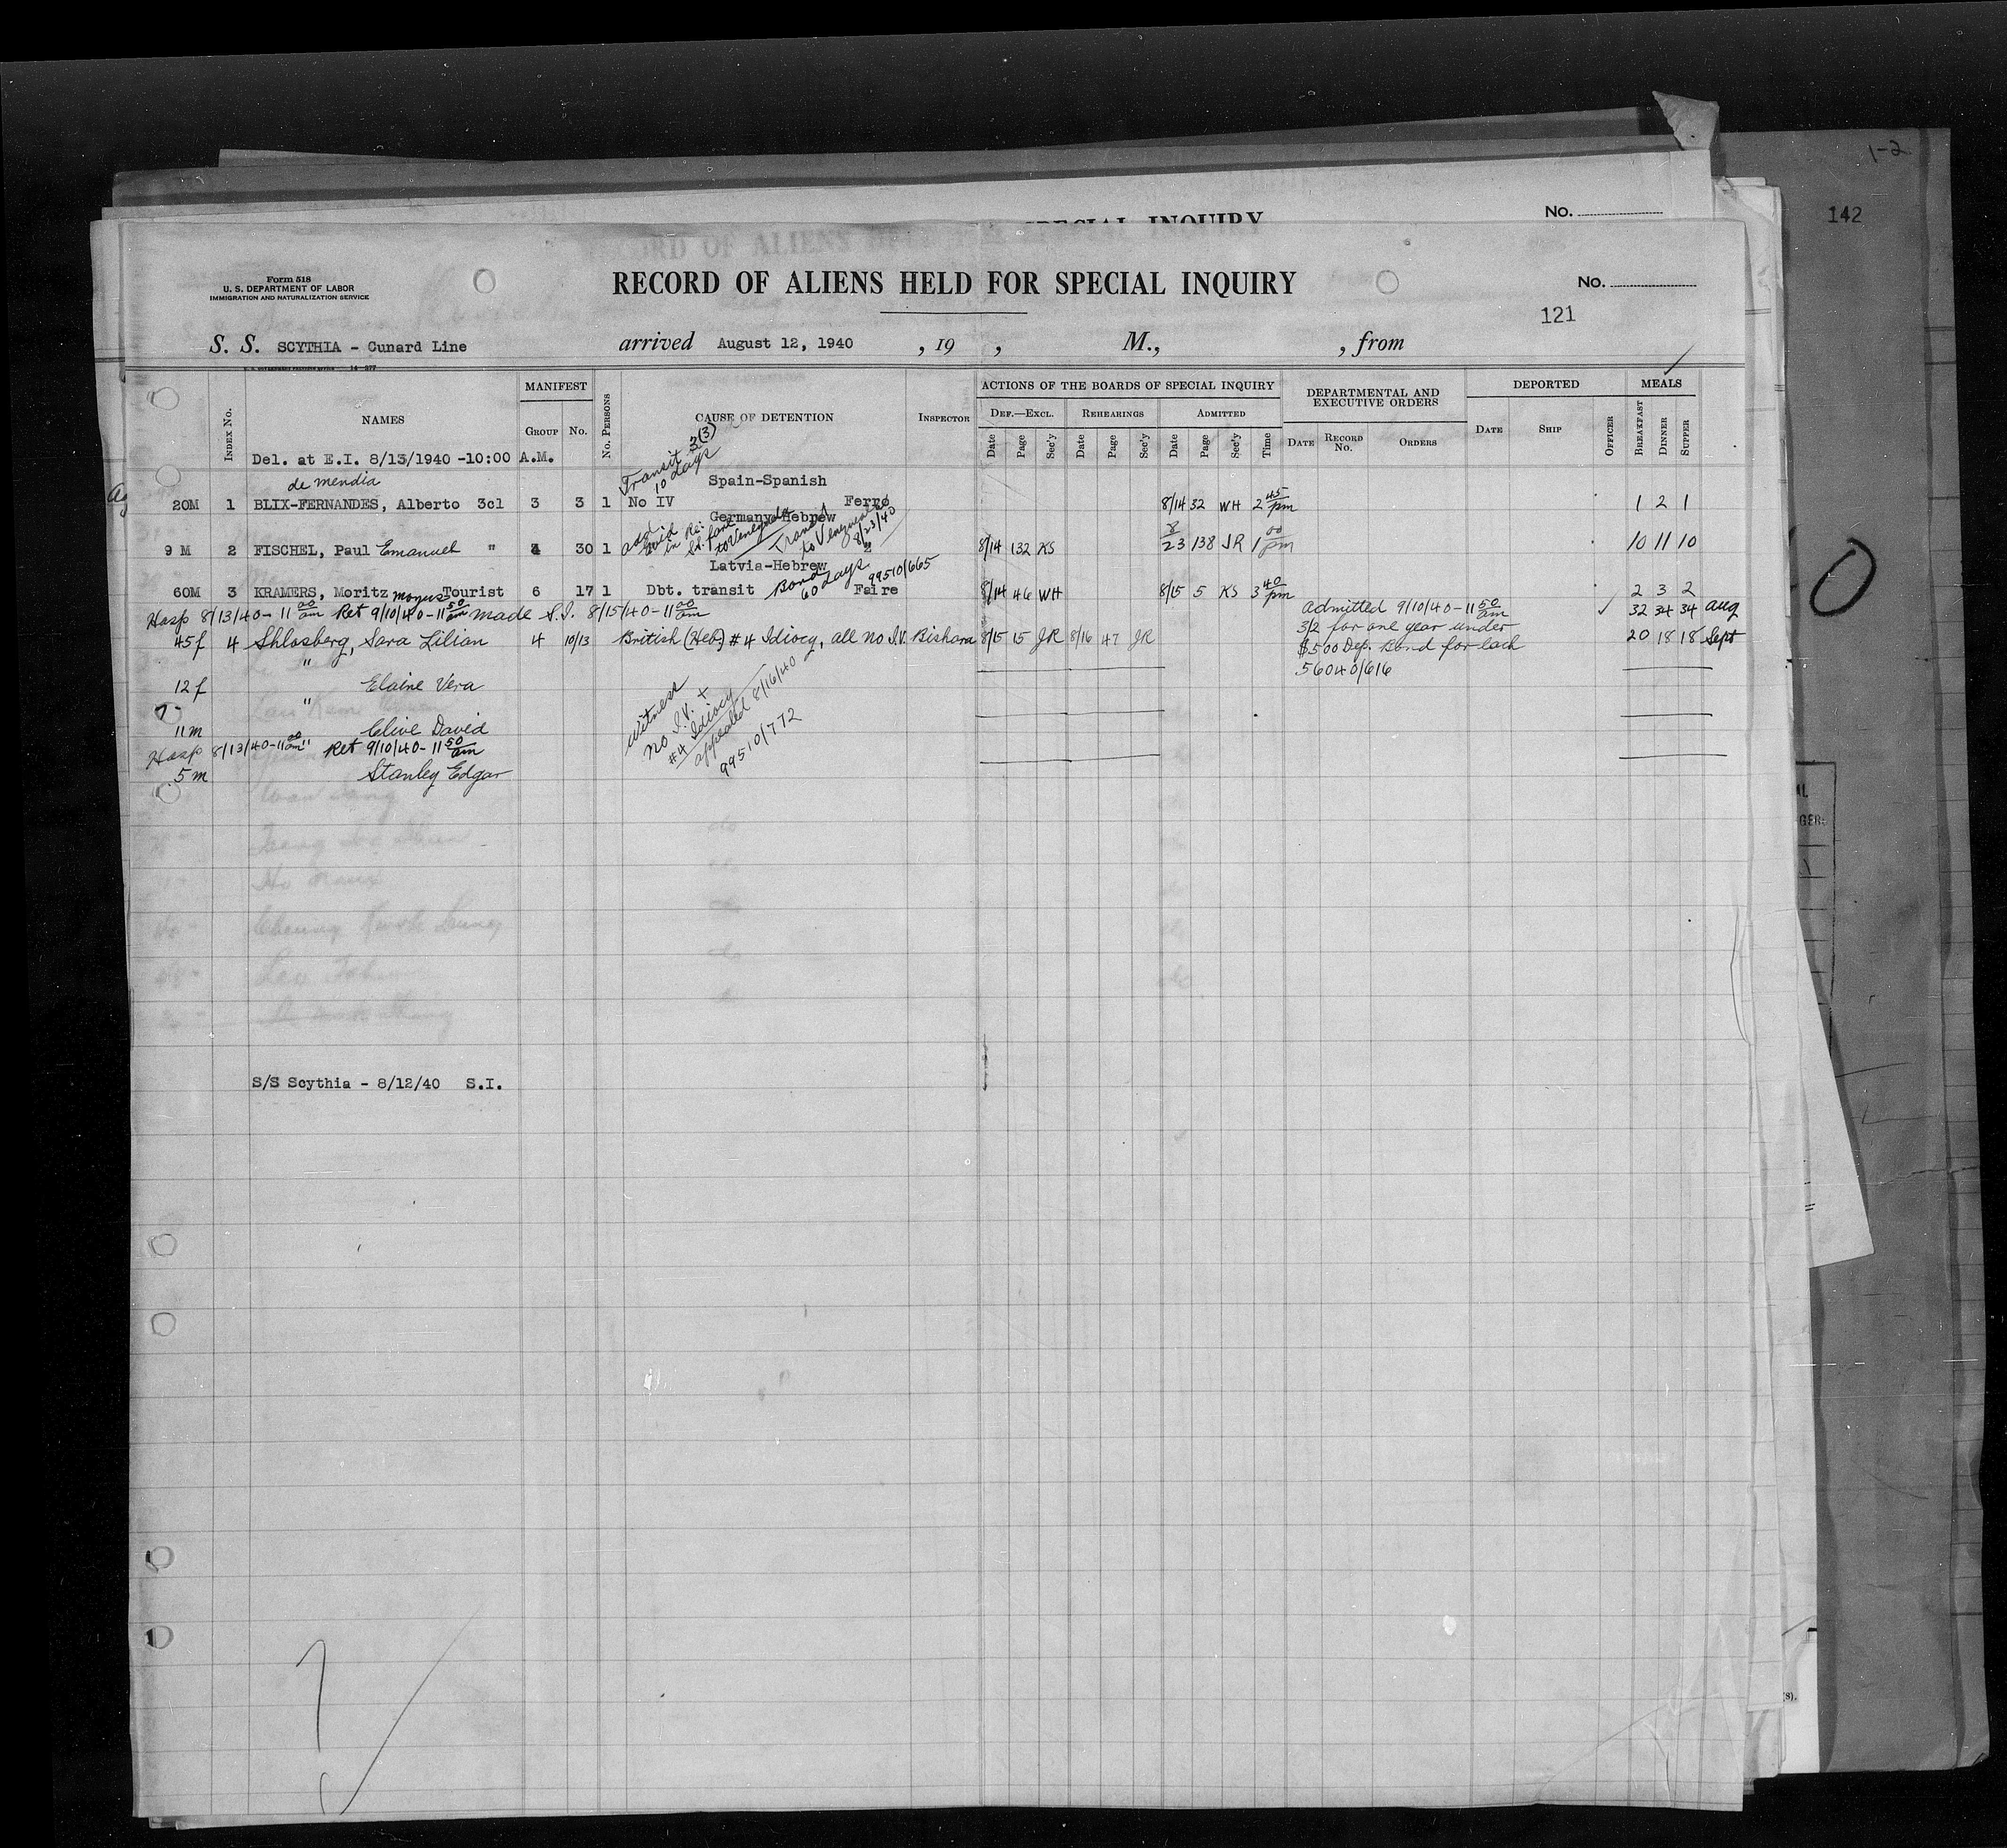 1-2
142
No.
SPECIAL INQUIRY
Form 518
U. S. DEPARTMENT OF LABOR
IMMIGRATION AND NATURALIZATION SERVICE
RECORD OF ALIENS HELD FOR SPECIAL INQUIRY
No.
121
S. S. SCYTHIA - Cunard Line arrived August 12, 1940 , 19 , M., , from
14-277
MANIFEST ACTIONS OF THE BOARDS OF SPECIAL INQUIRY DEPARTMENTAL AND EXECUTIVE ORDERS DEPORTED MEALS
INDEX No. NAMES GROUP No. No. PERSONS CAUSE OF DETENTION INSPECTOR DEF.—EXCL. REHEARINGS ADMITTED
Date Page Sec'y Date Page Sec'y Date Page Sec'y Time DATE RECORD No. ORDERS DATE SHIP OFFICER BREAKFAST DINNER SUPPER
Del. at E.I. 8/13/1940 -10:00 A.M.
Transit 3(3)
10 days
de mendia Spain-Spanish
20M 1 BLIX-FERNANDES, Alberto 3cl 3 3 1 No IV Ferro 8/14 32 WH 2 45/pm 1 2 1
Germany-Hebrew
add evid in Re: to Venezuela
Transit to Venezuela 8/23/40
9 M 2 FISCHEL, Paul Emanuel " 4 30 1 " 8/14 132 KS 8/23 138 JR 1 00/pm 10 11 10
Latvia-Hebrew
60M 3 KRAMERS, Moritz Tourist 6 17 1 Dbt. transit Bond 60 days 99510/665 Faire 8/14 46 WH 8/15 5 KS 3 40/pm 2 3 2
Hosp 8/13/40 - 11 00/am Ret 9/10/40 - 11 50/am made S.I. 8/15/40 - 11 00/am Admitted 9/10/40 - 11 50/am ✓ 32 34 34 Aug
3/2 for one year under
45 f 4 Shlosberg, Sara Lilian 4 10/13 British (Heb) #4 Idiocy, all no I.V. Bishara 8/15 15 JR 8/16 47 JR $500 Dep. Bond for each 20 18 18 Sept
56040/616
12 f " Elaine Vera
witness
no I.V. +
#4 Idiocy
appealed 8/16/40
99510/772
11 m " Clive David
Hosp 8/13/40 - 11 00/am " Ret 9/10/40 - 11 50/am
5 m Stanley Edgar
S/S Scythia - 8/12/40 S.I.